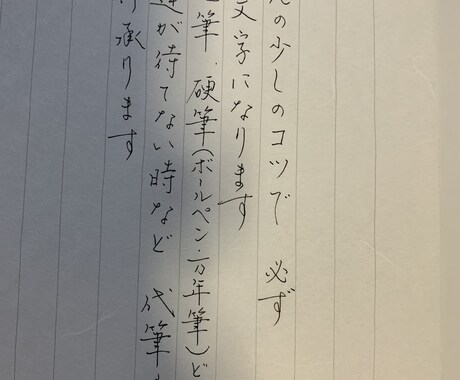 の少しのコツで 必ず
文字になります
筆、硬筆(ボールペン・万年筆)ど
が待てない時など 代筆
承ります